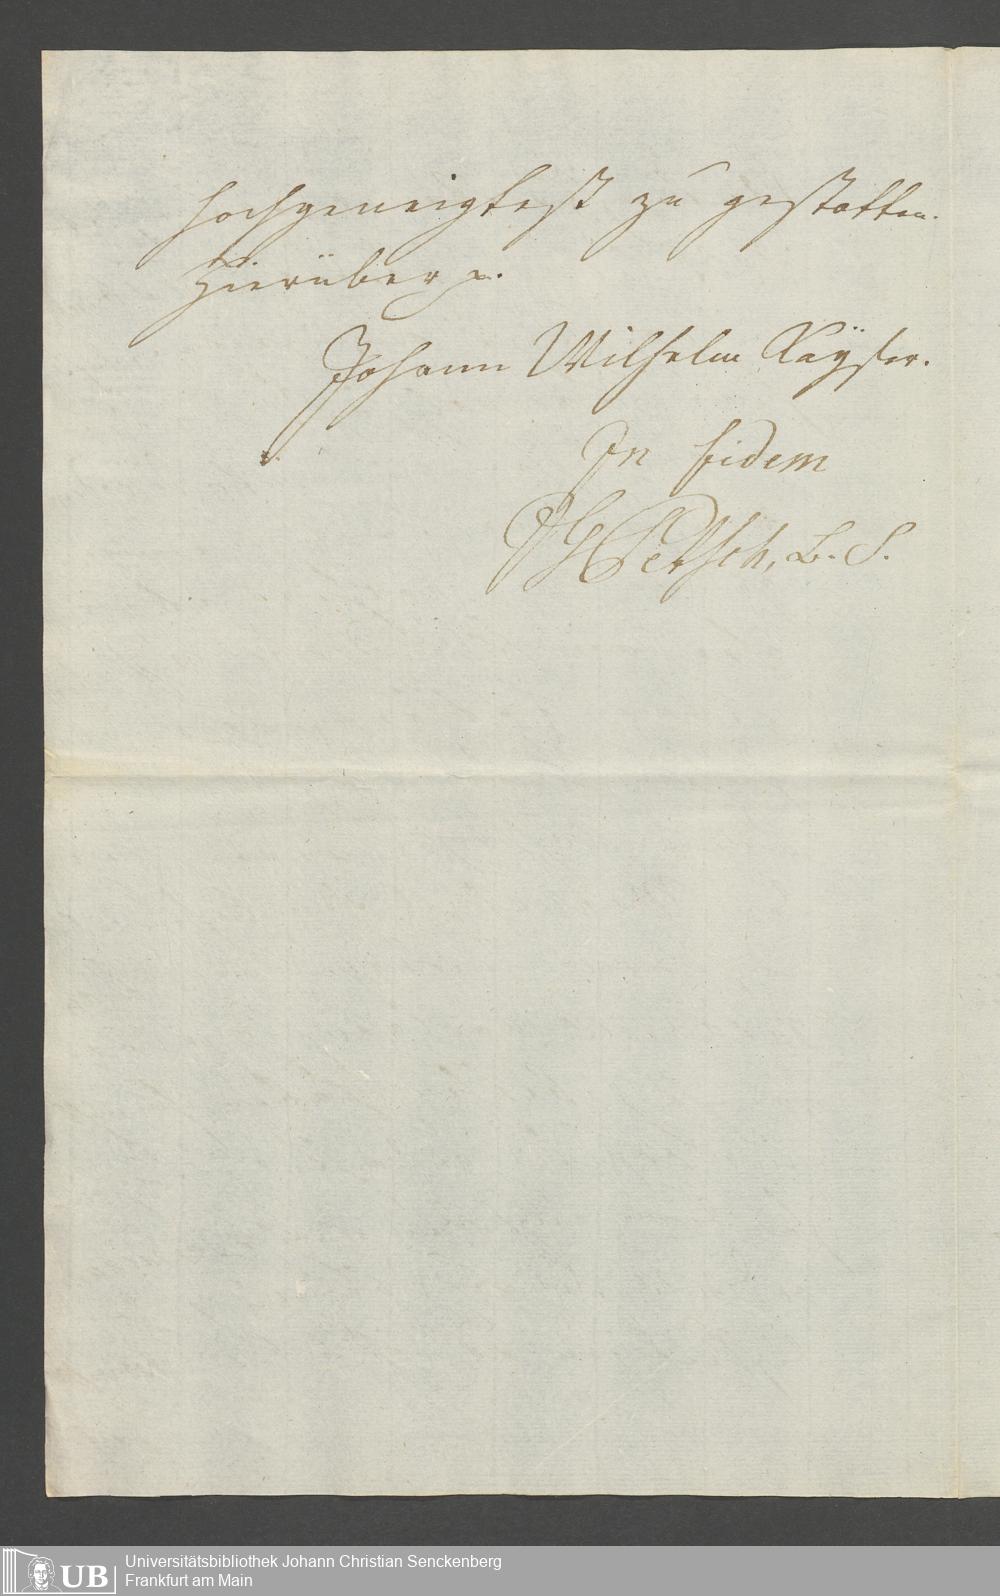 hochgeneigtest zu gestatten.
Hierüber
Johann Wilhelm Kaÿser.
In fidem
Petsch, L. S.
UB
Universitätsbibliothek Johann Christian Senckenberg
Frankfurt am Main